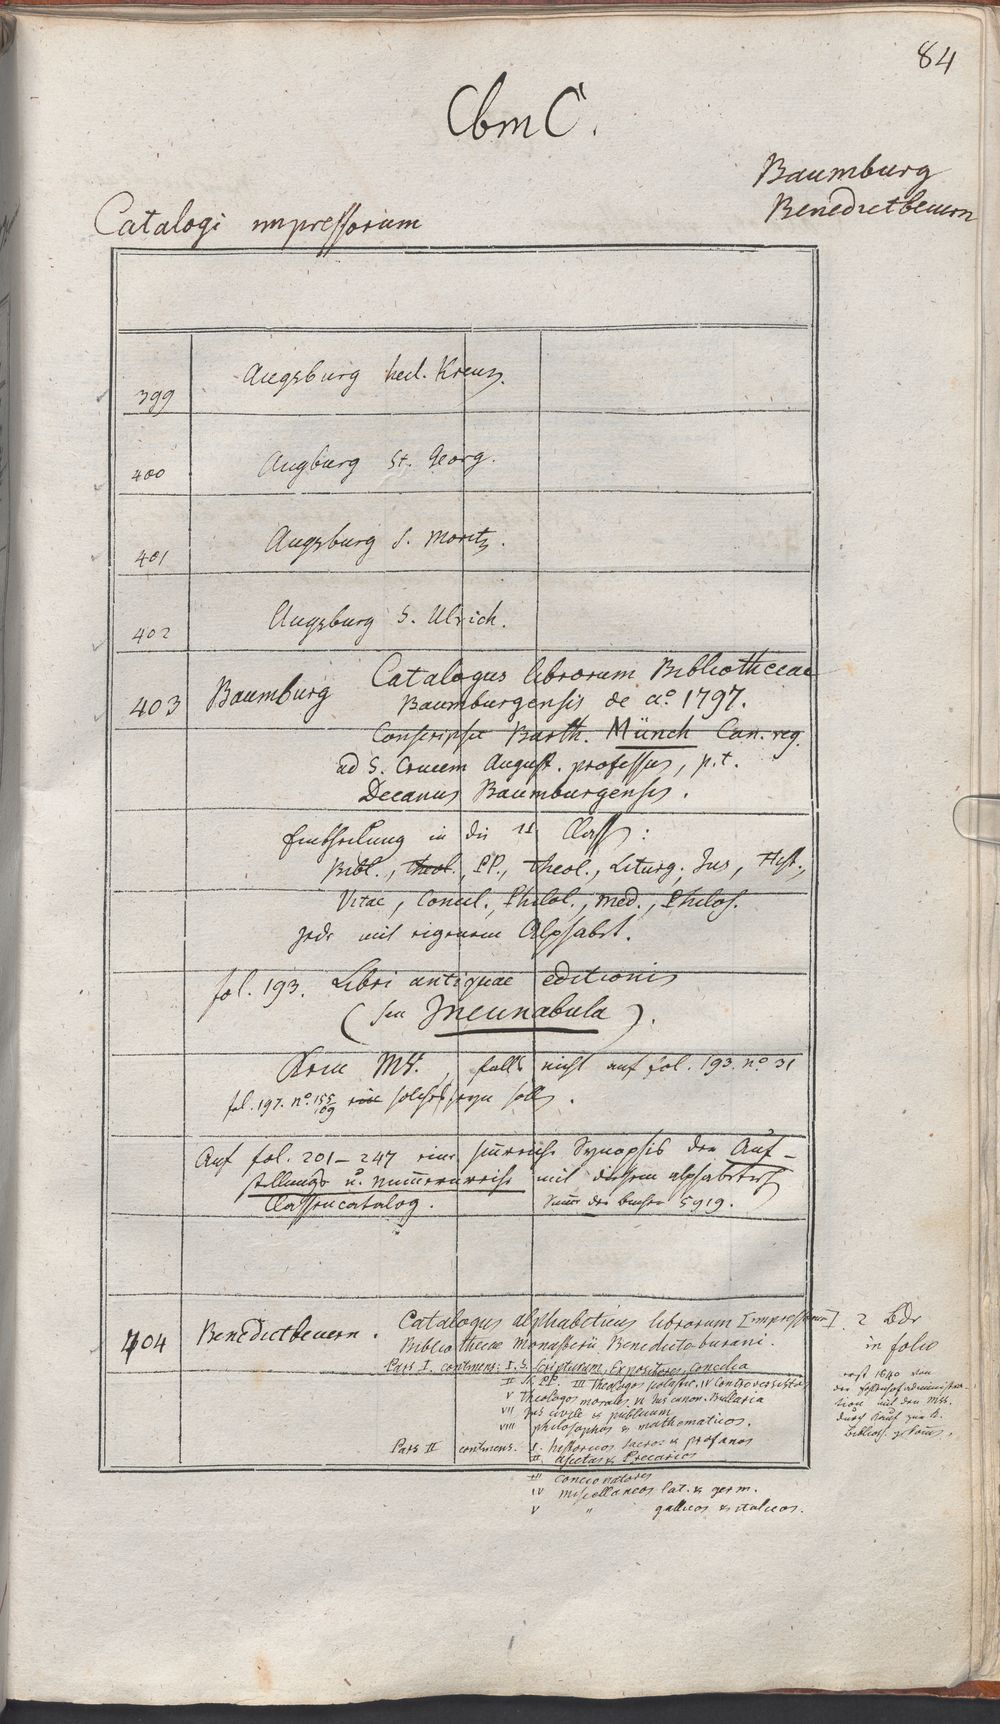 84
Cbm C.
Baumburg
Benedictbeuern
Catalogi impressorum
399 Augsburg heil. Kreuz.
400 Augburg St. Georg.
401 Augsburg S. Moritz.
402 Augsburg S. Ulrich.
403 Baumburg Catalogus librorum Bibliothecae
Baumburgensis de aº 1797.
Conscripsit Barth. Münch Can. reg.
ad S. Crucem August. professus, p. t.
Decanus Baumburgensis.
Eintheilung in die 11 Classen:
Bibl., theol., PP., theol., Liturg., Jus, Hist.,
Vitae, Concil., Philol., med., Philos.
jede mit eigenem Alphabet.
fol. 193. Libri antiquae editionis
(seu Incunabula).
Keine MS., falls nicht auf fol. 193. nº 31
fol. 197. nº 155/109 ein solches seyn soll.
Auf fol. 201–247 eine Synopsis der Auf-
stellungs u. Numernreihe mit diesem alphabetisch
Classencatalog. Sum̄e der Bücher 5919.
404 Benedictbeuern. Catalogus alphabeticus librorum [impressorum]. 2 Bde
Bibliothecae Monasterii Benedictoburani. in folio
Pars I. continens: I. S. Scripturam, Expositores, Concilia
II SS. PP. III Theologos polastic. IV Controversistas
V Theologos morales VI Jus canon. Bullaria
VII Jus civile & publicum
VIII philosophos & mathematicos.
Pars II continens. I. historicos sacros & profanos
II ascetas & Precarios
III Concionatores
IV miscellaneos lat. & germ.
V " gallicos & italicos.
erst 1640 von
der
tion mit den MSS.
durch Kauf zur B.
Biblioth.